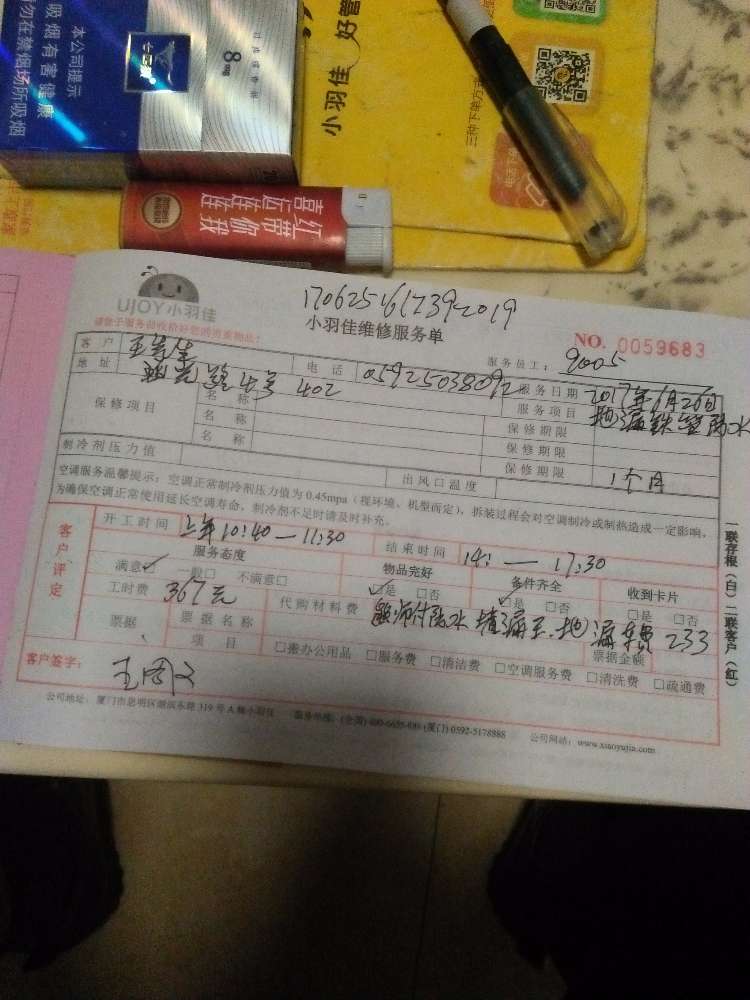 本公司提示
吸烟有害健康
勿在禁烟场所吸烟
8mg
小羽佳 好管
三种下单方式
红带你我
喜运连连
1706251617392019
UJOY小羽佳
小羽佳维修服务单
NO. 0059683
服务员工: 9005
客户
地址 4号 402
电话 05925038092
服务日期 2017年6月26日
服务项目 地漏铁管防水
保修项目
名称
名称
名称
保修期限
保修期限
保修期限 1个月
制冷剂压力值
出风口温度
空调服务温馨提示:空调正常制冷剂压力值为0.45mpa(视环境、机型而定),拆装过程会对空调制冷或制热造成一定影响,
为确保空调正常使用延长空调寿命,制冷剂不足时请及时补充。
客户评定
开工时间 上午10:40—11:30
结束时间 14: — 17:30
服务态度
物品完好
备件齐全
收到卡片
满意 ✓ 一般□ 不满意□
✓是 □否
✓是 □否
□是 □否
工时费 367元
代购材料费 防水 地漏 233
票据
票据名称
票据金额
项目 □搬办公用品 □服务费 □清洁费 □空调服务费 □清洗费 □疏通费
客户签字:
公司地址:厦门市思明区湖滨东路319号A栋小羽佳
(厦门)0592-5178888
公司网站:www.xiaoyujia.com
一联存根(白)二联客户(红)